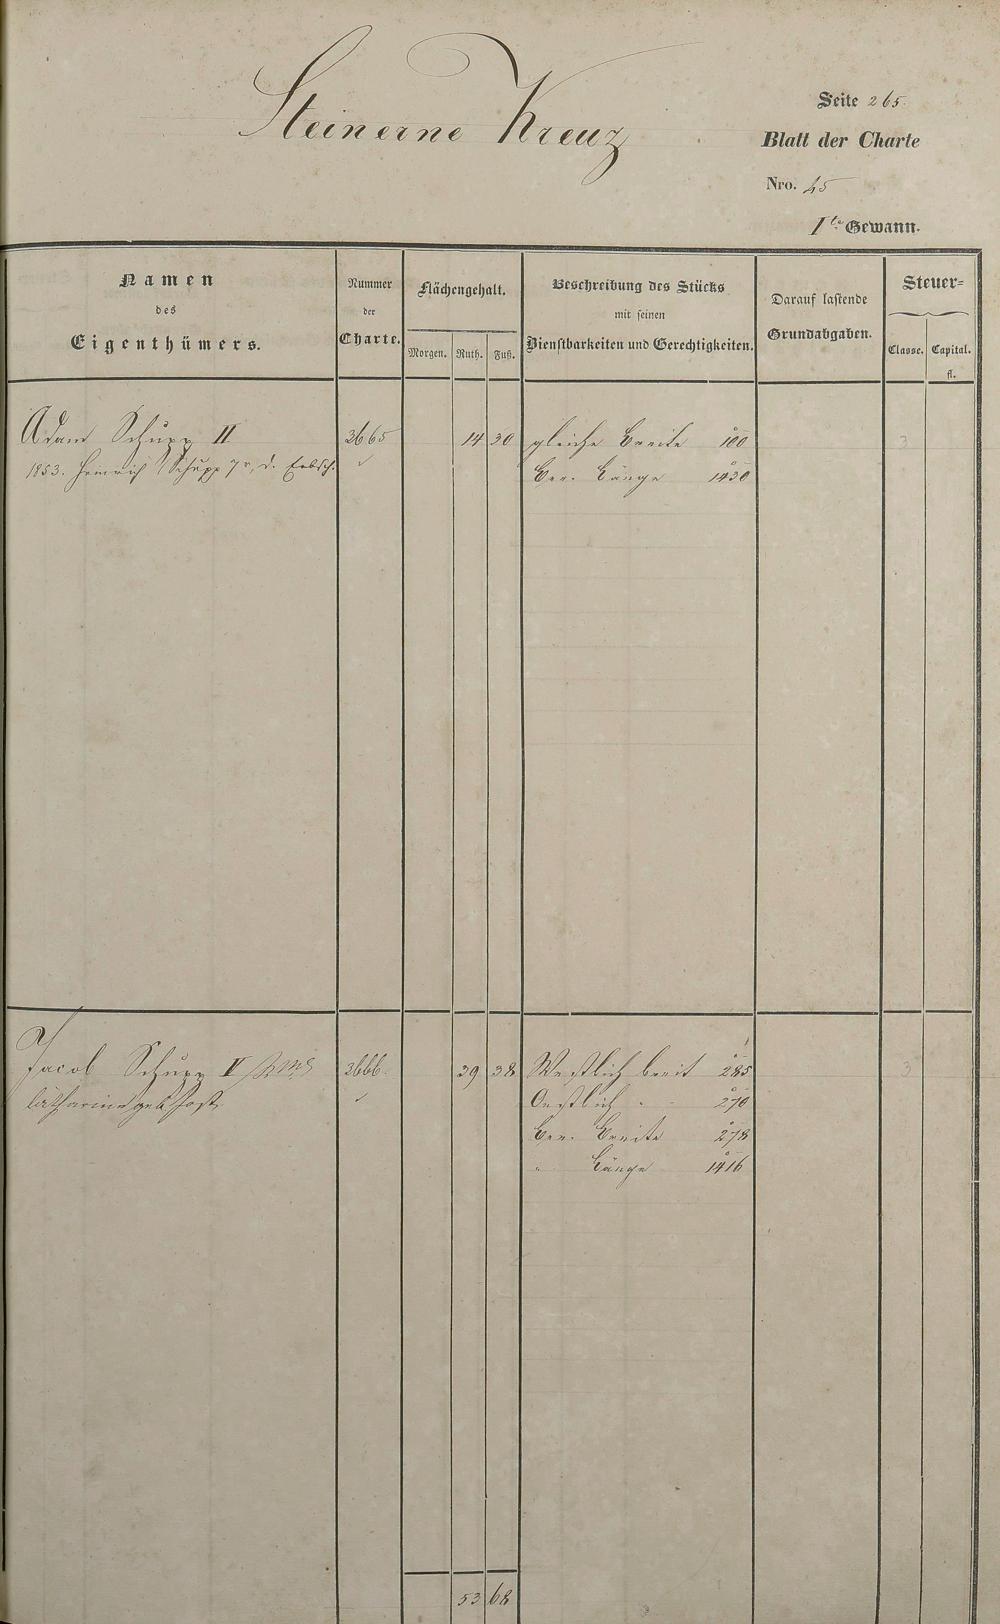 Steinerne Kreuz
Seite 265.
Blatt der Charte
Nro. 45
I.te Gewann.
Namen des Eigenthümers.
Nummer der Charte.
Flächengehalt.
Morgen. Ruth. Fuß.
Beschreibung des Stücks mit seinen Dienstbarkeiten und Gerechtigkeiten.
Darauf lastende Grundabgaben.
Steuer=
Classe. Capital. fl.
Adam Schupp II 3665 14 30 gleiche Breite 100 3
1853. Heinrich Schupp 7r, d. Erbsch. Ber. Länge 1430
Jacob Schupp V 3666. 39 38 Westlich breit 285 3
Catharina geb. Jost Oestlich " " 270
Ber. Breite 278
" Länge 1416
53 68